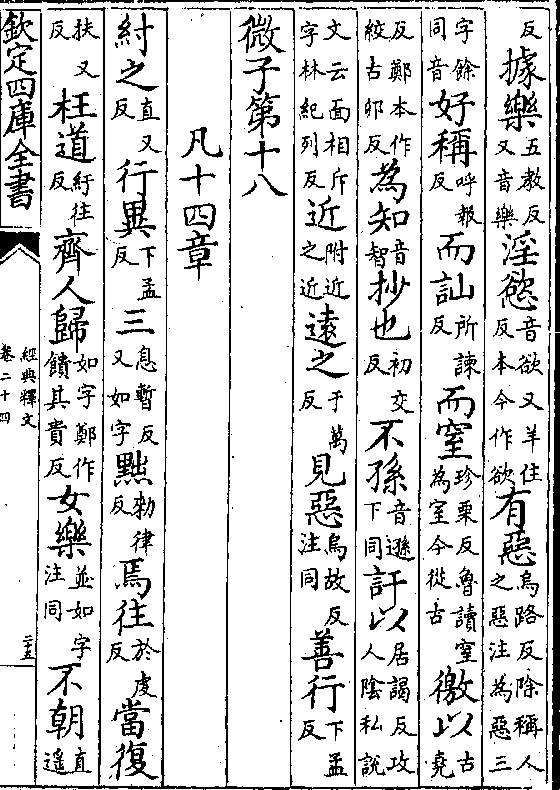 反據樂五教反又音樂淫慾音欲又羊住反本今作欲有惡烏路反除稱人之惡注為惡三
字餘同音好稱呼報反而訕所諫反而窒珍栗反魯讀窒為室今從古徼以古堯
反鄭本作絞古卯反為知音智抄也初交反不孫音遜下同訐以居謁反攻人陰私說
文云面相斥字林紀列反近附近之近遠之于萬反見惡烏故反注同善行下孟反
微子第十八
凡十四章
紂之直又反行異下孟反三息暫反又如字黜勑律反焉往於虔反當復
扶又反枉道紆往反齊人歸如字鄭作饋其貴反女樂並如字注同不朝直遥
欽定四庫全書
經典釋文
卷二十四
二五